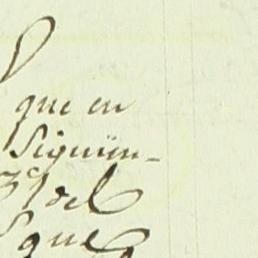 que en
Siguien-
31 del
que